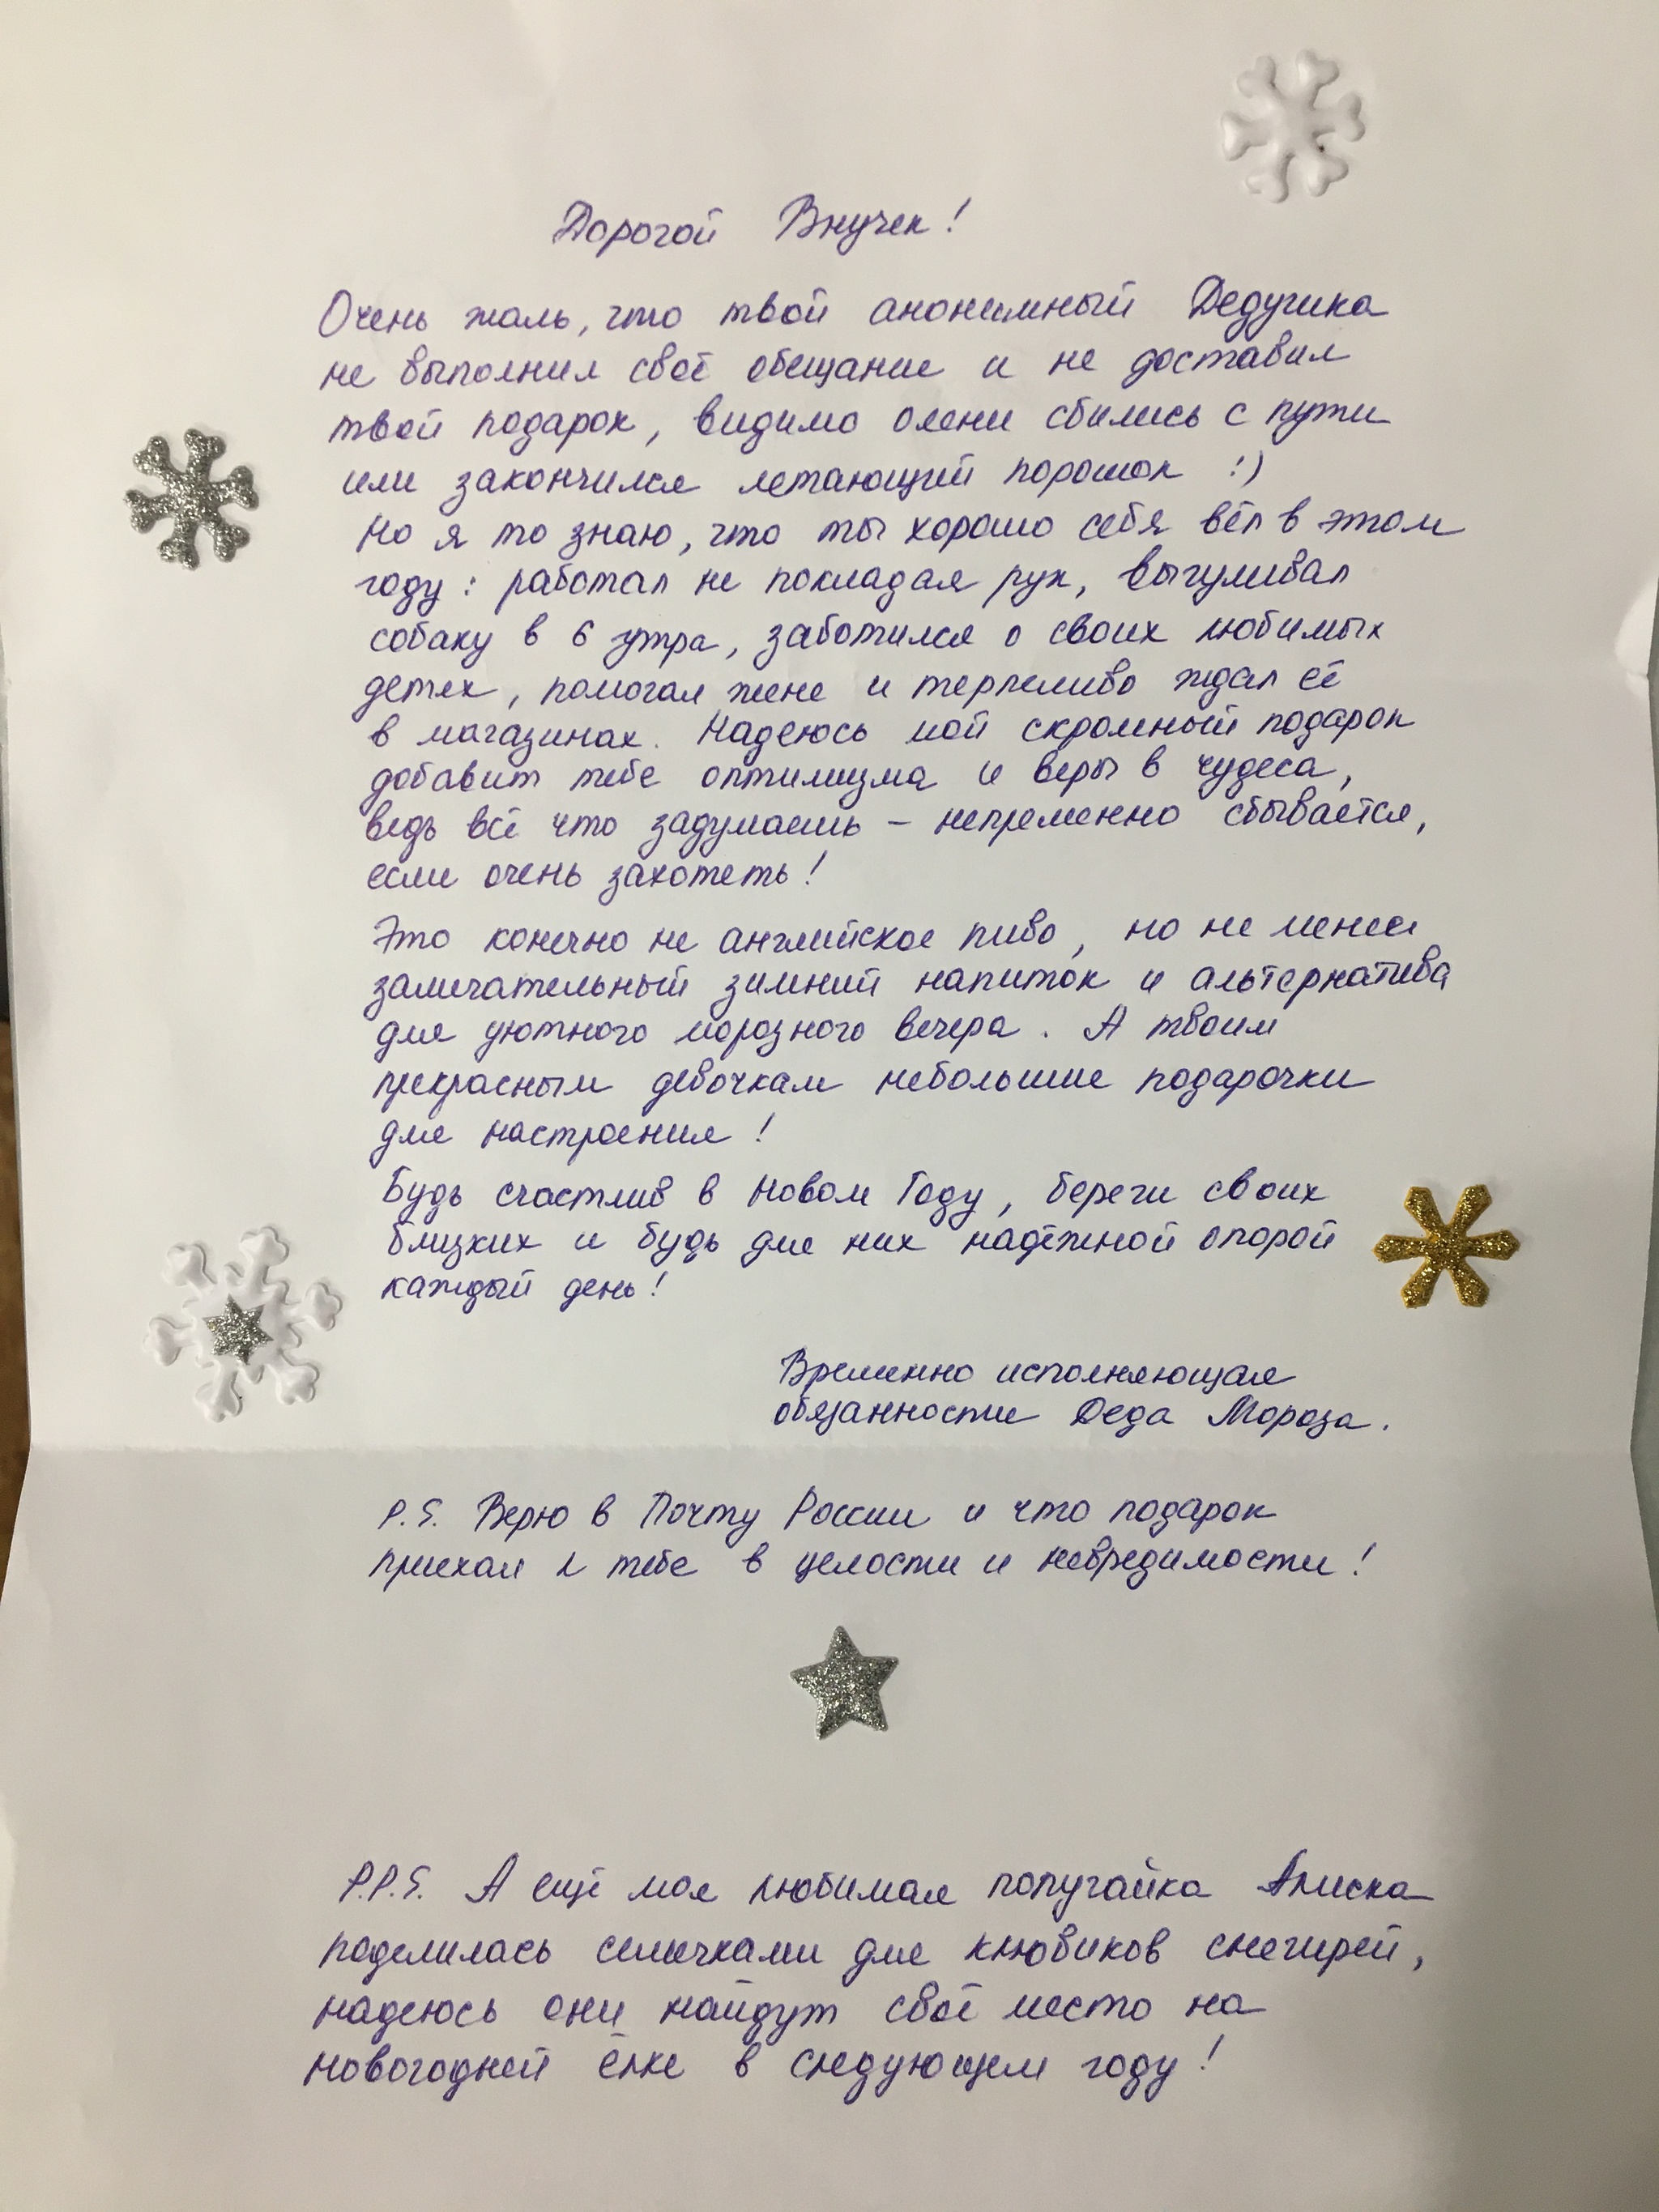 Дорогой Внучек!
Очень жаль, что твой анонимный Дедушка
не выполнил своё обещание и не доставил
твой подарок, видимо олени сбились с пути
или закончился летающий порошок :)
Но я то знаю, что ты хорошо себя вёл в этом
году: работал не покладая рук, выгуливал
собаку в 6 утра, заботился о своих любимых
детях, помогал жене и терпеливо ждал её
в магазинах. Надеюсь мой скромный подарок
добавит тебе оптимизма и веры в чудеса,
ведь всё что задумаешь – непременно сбывается,
если очень захотеть!
Это конечно не английское пиво, но не менее
замечательный зимний напиток и альтернатива
для уютного морозного вечера. А твоим
прекрасным девочкам небольшие подарочки
для настроения!
Будь счастлив в Новом Году, береги своих
близких и будь для них надёжной опорой
каждый день!
Временно исполняющая
обязанности Деда Мороза.
P.S. Верю в Почту России и что подарок
приехал к тебе в целости и невредимости!
P.P.S. А ещё моя любимая попугайка Алиска
поделилась семечками для клювиков снегирей,
надеюсь они найдут своё место на
новогодней ёлке в следующем году!